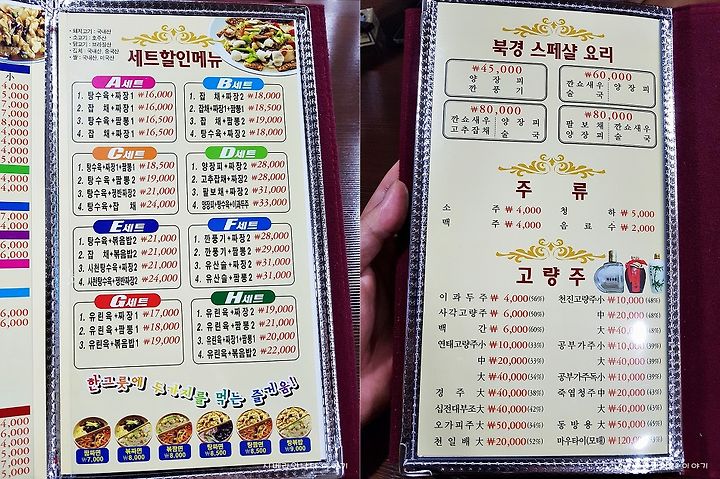 小
4,000
4,000
5,000
6,000
4,000
6,000
6,000
• 돼지고기 : 국내산
• 소고기 : 호주산
• 닭고기 : 브라질산
• 김치 : 국내산, 중국산
• 쌀 : 국내산, 미국산
세트할인메뉴
A세트
1. 탕수육+짜장1 ₩16,000
2. 잡 채+짜장1 ₩16,000
3. 탕수육+짬뽕1 ₩16,500
4. 잡 채+짬뽕1 ₩16,500
B세트
1. 잡 채+짜장2 ₩18,000
2. 잡채+짜장1+짬뽕1 ₩18,500
3. 잡 채+짬뽕2 ₩19,000
4. 탕수육+짜장2 ₩18,000
C세트
1. 탕수육+짜장1+짬뽕1 ₩18,500
2. 탕수육+짬뽕2 ₩19,000
3. 탕수육+쟁반짜장2 ₩21,000
4. 탕수육+잡 채 ₩24,000
D세트
1. 양장피+짜장2 ₩28,000
2. 고추잡채+짜장2 ₩28,000
3. 팔보채+짜장2 ₩31,000
4. 양장피+탕수육+이과두주 ₩33,000
E세트
1. 탕수육+볶음밥2 ₩21,000
2. 잡 채+볶음밥2 ₩21,000
3. 사천탕수육+짜장2 ₩21,000
4. 사천탕수육+쟁반짜장2 ₩24,000
F세트
1. 깐풍기+짜장2 ₩28,000
2. 깐풍기+짬뽕2 ₩29,000
3. 유산슬+짜장2 ₩31,000
4. 유산슬+짬뽕2 ₩31,000
G세트
1. 유린육+짜장1 ₩17,000
2. 유린육+짬뽕1 ₩18,000
3. 유린육+볶음밥1 ₩19,000
H세트
1. 유린육+짜장2 ₩19,000
2. 유린육+짬뽕2 ₩21,000
3. 유린육+짜장2 ₩20,000
4. 유린육+볶음밥2 ₩22,000
한그릇에 두가지를 먹는 즐거움!
짬짜면 ₩7,000
볶짜면 ₩8,000
볶짬면 ₩8,500
탕짜면 ₩8,000
탕짬면 ₩8,500
탕볶밥 ₩9,000
북경 스페샬 요리
₩45,000
양 장 피
깐 풍 기
₩60,000
깐쇼새우 양장피
술 국
₩80,000
깐쇼새우 양장피
고추잡채 술 국
₩80,000
팔보채 깐쇼새우
양장피 술 국
주 류
소 주 ₩4,000
청 하 ₩5,000
백 주 ₩4,000
음 료 수 ₩2,000
고량주
이과두주 ₩4,000(56%)
사각고량주 ₩6,000(60%)
백 간 ₩6,000(50%)
연태고량주小 ₩10,000(33%)
中 ₩20,000(33%)
大 ₩40,000(34%)
경 주 大 ₩40,000(38%)
십전대부조大 ₩40,000(34%)
오가피주大 ₩50,000(42%)
천일배大 ₩20,000(52%)
천진고량주小 ₩10,000(48%)
中 ₩20,000(48%)
大 ₩40,0
공부가주小 ₩10,000(39%)
大 ₩40,000(39%)
공부가주독小 ₩10,000(39%)
죽엽청주中 ₩20,000(43%)
大 ₩40,000(43%)
동방용大 ₩50,000(45%)
마우타이(모태) ₩120,000